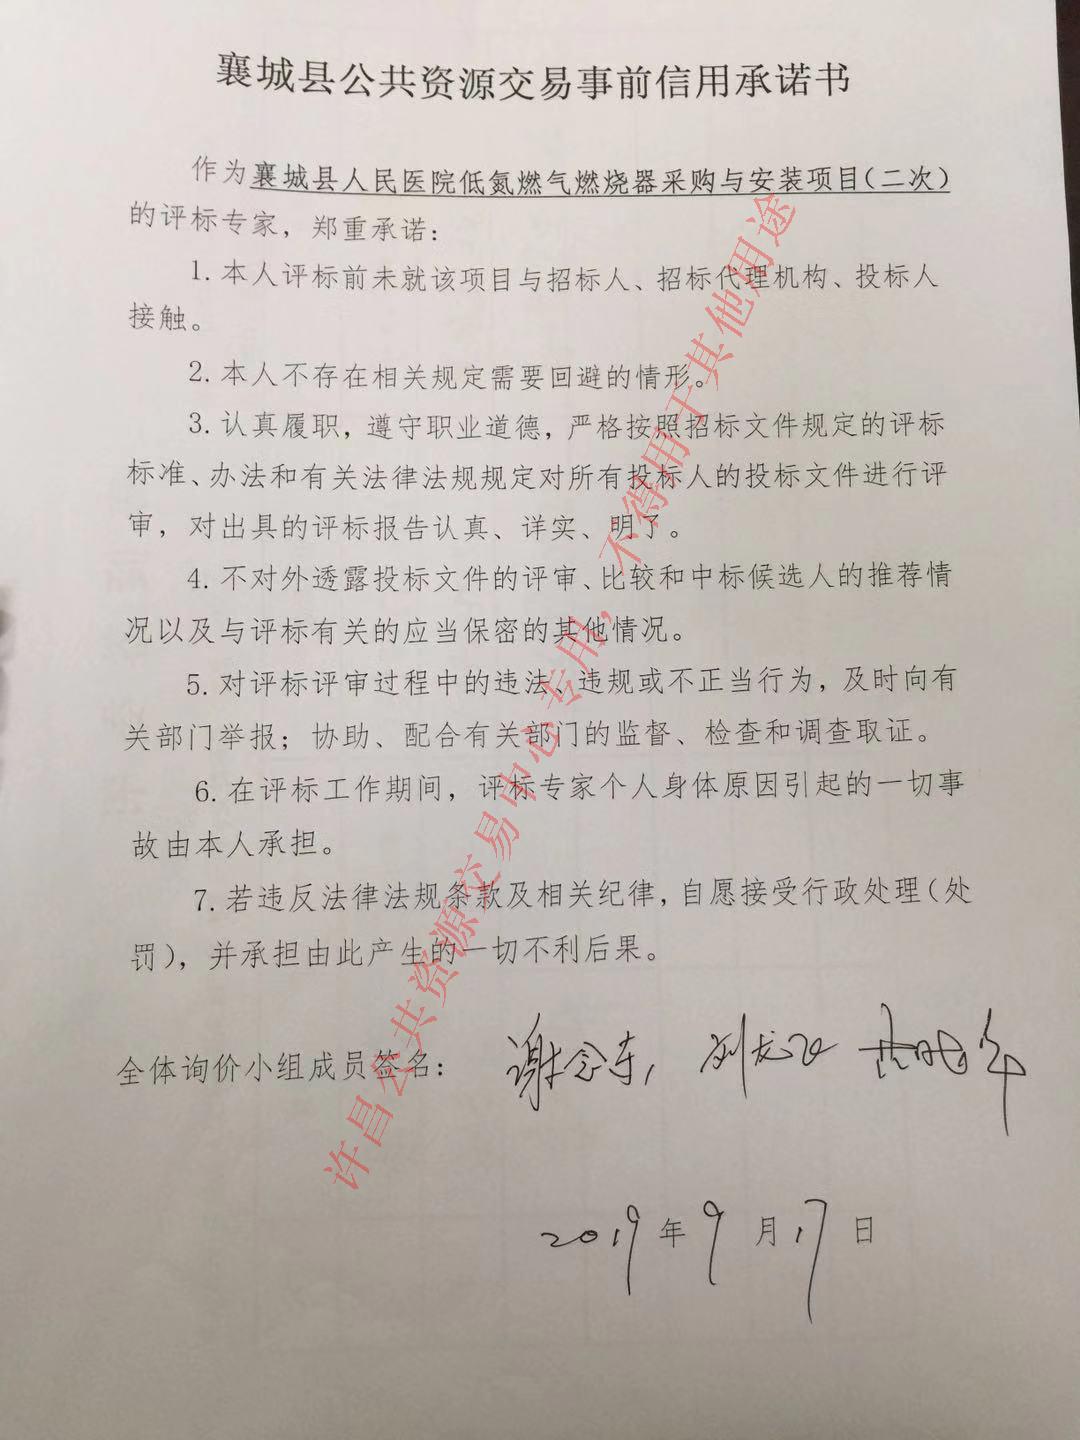 襄城县公共资源交易事前信用承诺书
作为襄城县人民医院低氮燃气燃烧器采购与安装项目(二次)
的评标专家，郑重承诺：
1.本人评标前未就该项目与招标人、招标代理机构、投标人
接触。
2.本人不存在相关规定需要回避的情形。
3.认真履职，遵守职业道德，严格按照招标文件规定的评标
标准、办法和有关法律法规规定对所有投标人的投标文件进行评
审，对出具的评标报告认真、详实、明了。
4.不对外透露投标文件的评审、比较和中标候选人的推荐情
况以及与评标有关的应当保密的其他情况。
5.对评标评审过程中的违法、违规或不正当行为，及时向有
关部门举报；协助、配合有关部门的监督、检查和调查取证。
6.在评标工作期间，评标专家个人身体原因引起的一切事
故由本人承担。
7.若违反法律法规条款及相关纪律，自愿接受行政处理(处
罚)，并承担由此产生的一切不利后果。
全体询价小组成员签名：谢念东，刘龙飞
2019年9月17日
许昌公共资源交易中心专用，不得用于其他用途